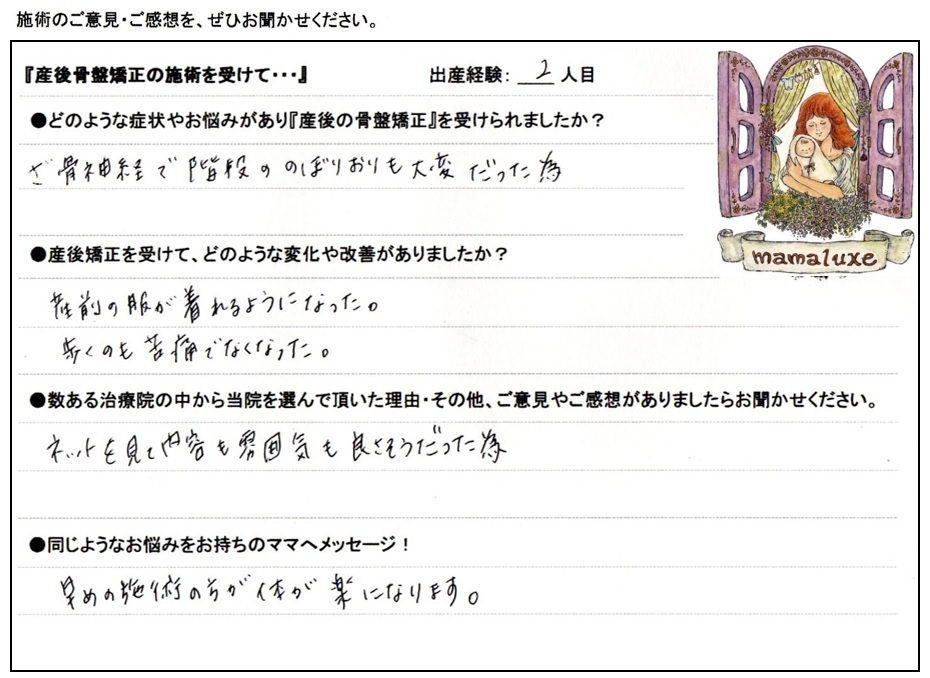 施術のご意見・ご感想を、ぜひお聞かせください。
『産後骨盤矯正の施術を受けて・・・』　出産経験：2人目
●どのような症状やお悩みがあり『産後の骨盤矯正』を受けられましたか？
ざ骨神経で階段ののぼりおりも大変だった為
●産後矯正を受けて、どのような変化や改善がありましたか？
産前の服が着れるようになった。
歩くのも苦痛でなくなった。
mamaluxe
●数ある治療院の中から当院を選んで頂いた理由・その他、ご意見やご感想がありましたらお聞かせください。
ネットを見て内容も雰囲気も良さそうだった為
●同じようなお悩みをお持ちのママへメッセージ！
早めの施術の方が体が楽になります。